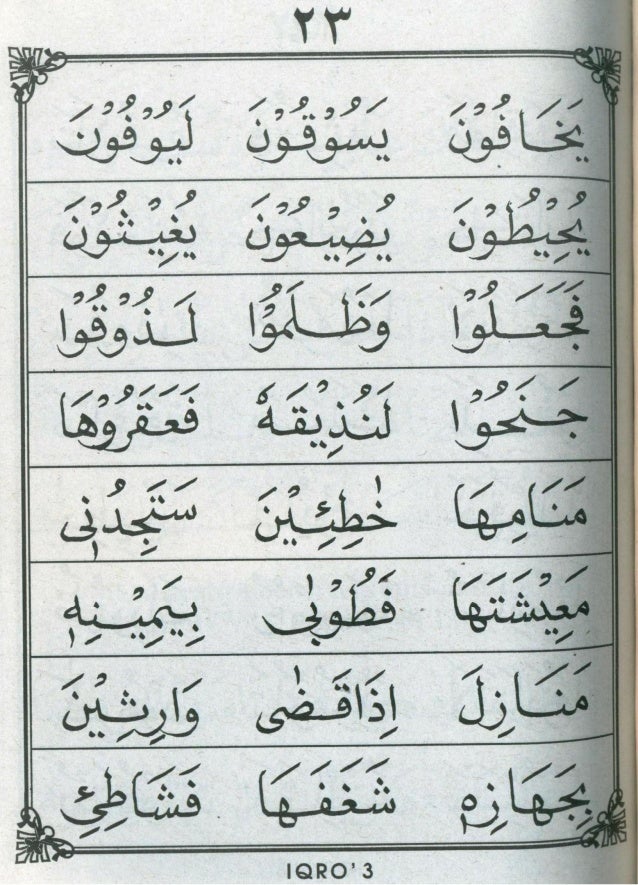 ٢٣
يَخَافُوْنَ يَسُوْقُوْنَ لَيُوْفُوْنَ
يُحِيْطُوْنَ يُضِيْعُوْنَ يُغِيْثُوْنَ
فَجَعَلُوْا وَظَلَمُوْا لَذُوْقُوْا
جَنَحُوْا لَنُذِيْقَهٗ فَعَقَرُوْهَا
مَنَامِهَا خٰطِئِيْنَ سَتَجِدُنِى
مَعِيْشَتَهَا فَطُوْبٰى بِيَمِيْنِهٖ
مَنَازِلَ اِذَاقَضٰى وَارِثِيْنَ
بِجَهَازِهٖ شَغَفَهَا فَشَاطِئِ
IQRO' 3